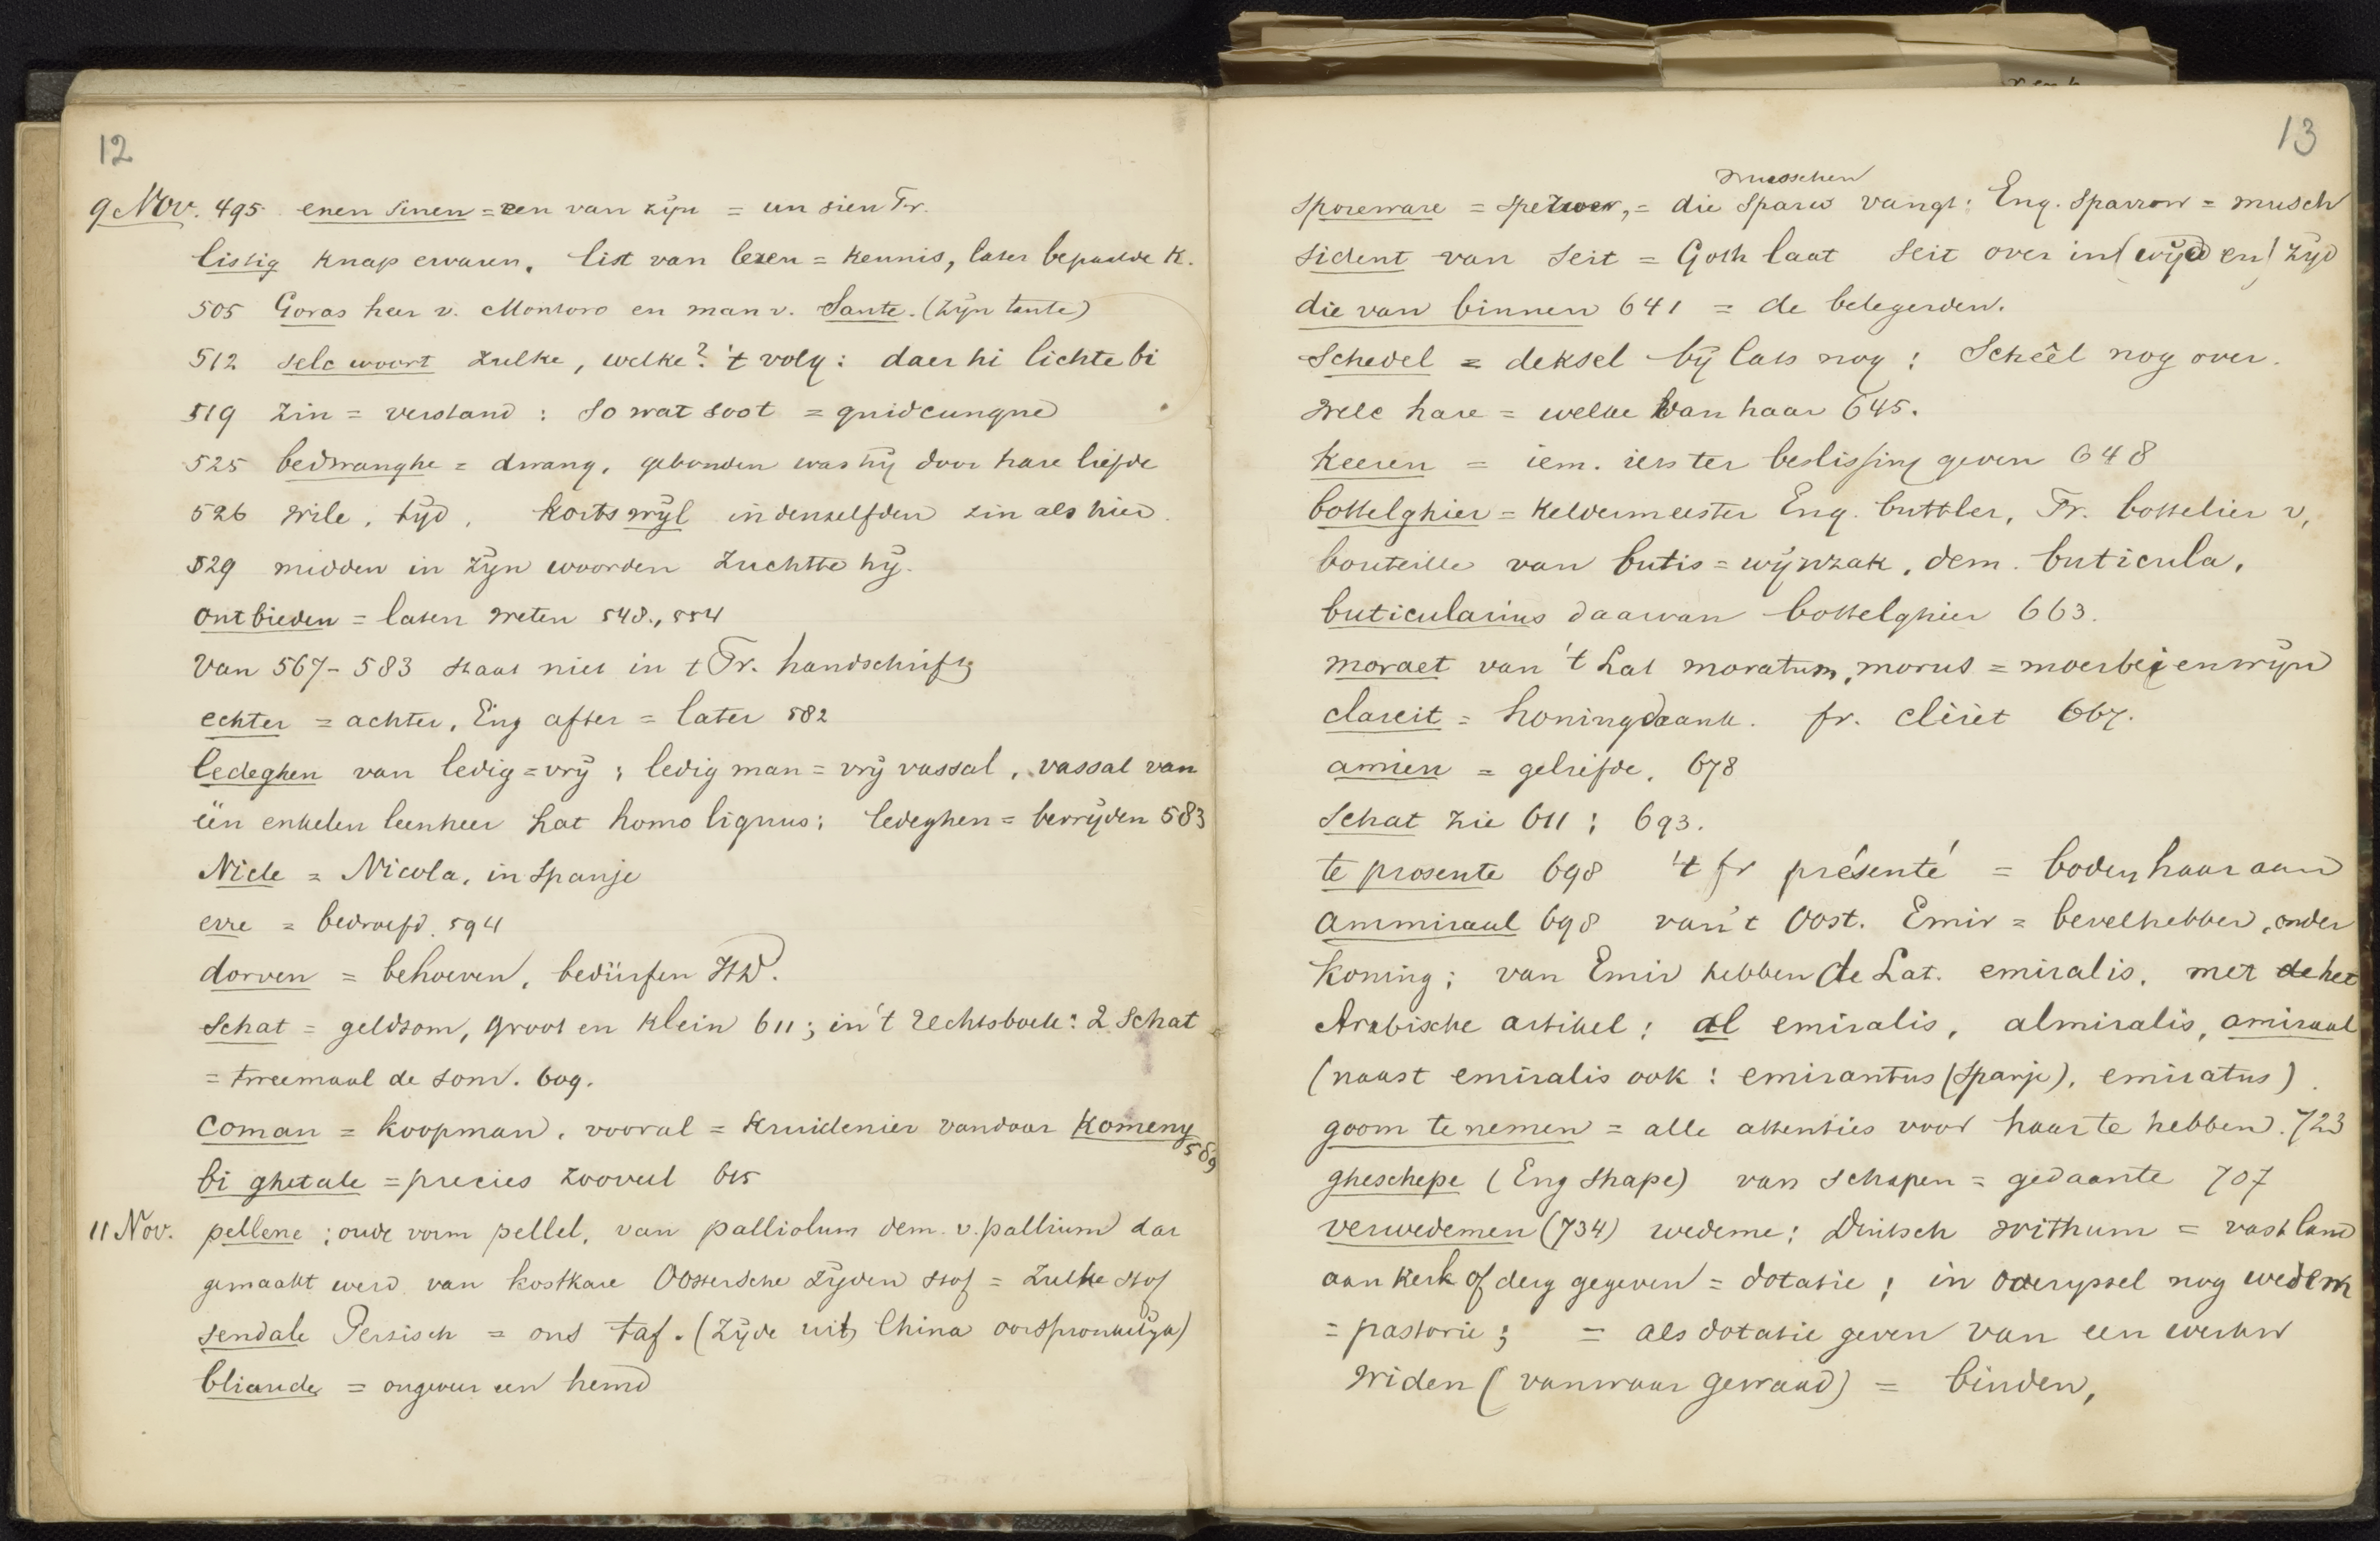 12
9 Nov. 495 enen sinen = een van zijn = un sien Fr.
listig knap ervaren, list van lezen = kennis, later bepaalde K.
505 Goras heer v. Montoro en man v. Sante. (zijn tante)
512 selc woort zulke, welke? 't volg: daer hi lichte bi
519 zin = verstand : so wat soot = quidcunque
525 bedwanghe = dwang, gebonden was hij door hare liefde
526 wile, tijd, kortswijl in denzelfden zin als hier.
529 midden in zijn woorden zuchtte hij.
ontbieden = laten weten 548., 554
Van 567-583 staat niet in t Fr. handschrift
echter = achter, Eng after = later 582
ledeghen van ledig = vrij ; ledig man = vrij vassal, vassal van
één enkelen leenheer Lat homo ligius; ledeghen = bevrijden 583
Nicle = Nicola, in Spanje
erre = bedroefd. 594
dorven = behoeven, bedürfen HD.
Schat = geldsom, groot en klein 611; in 't rechtsboek: 2 Schat
= tweemaal de som. 609.
Coman = koopman, vooral = kruidenier vandaar Komeny
589
bi ghetale = precies zooveel 615
11 Nov. pellene ; oude vorm pellel, van palliolum dem. v. pallium dat
gemaakt werd van kostbare Oostersche zijden stof = zulke stof
sendale Perzisch = ons taf. (zijde uit China oorspronkelijk)
bliaude = ongeveer een hemd
13
musschen
Sporeware = sperwer, = die Sparw vangt: Eng. Sparrow = musch
sident van seit = Goth laat seit over in (wijd en) zijd
die van binnen 641 = de belegerden.
Schedel = deksel bij Cats nog ; Schêel nog over.
welc hare = welke van haar 645.
Keeren = iem. iets ter beslissing geven 648
bottelghier = keldermeester Eng. buttler, Fr. bottelier v,
bouteille van butis = wijnzak, dem. buticula,
buticularius daarvan bottelghier 663.
moraet van 't Lat moratum, morus = moerbeienwijn
clareit = honingdrank. fr. cléret 667.
amien = geliefde, 678
Schat zie 611 ; 693.
te prosente 698 't fr présenté = boden haar aan
Ammiraal 698 van 't Oost. Emir = bevelhebber, onder
koning; van Emir hebben de Lat. emiralis, met de het
Arabische artikel ; al emiralis, almiralis, amiraal
(naast emiralis ook : emirantus (Spanje), emiratus).
goom te nemen = alle attenties voor haar te hebben. 723
gheschepe (Eng shape) van schapen = gedaante 707
verwedemen (734) wedeme; Duitsch withum = vast land
aan kerk of derg gegeven = dotatie ; in overyssel nog wedem
= pastorie ; = als dotatie geven van een
widen (vanwaar gewaad) = binden,